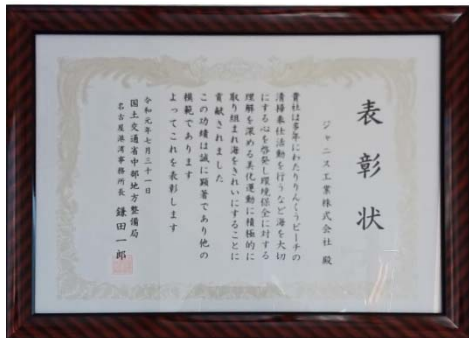 表彰状
ジャニス工業株式会社 殿
貴社は多年にわたりりんくうビーチの
清掃奉仕活動を行うなど海を大切
にする心を啓発し環境保全に対する
理解を深める美化運動に積極的に
取り組まれ海をきれいにすることに
貢献されました
この功績は誠に顕著であり他の
模範であります
よってこれを表彰します
令和元年七月三十一日
国土交通省中部地方整備局
名古屋港湾事務所長 鎌田一郎